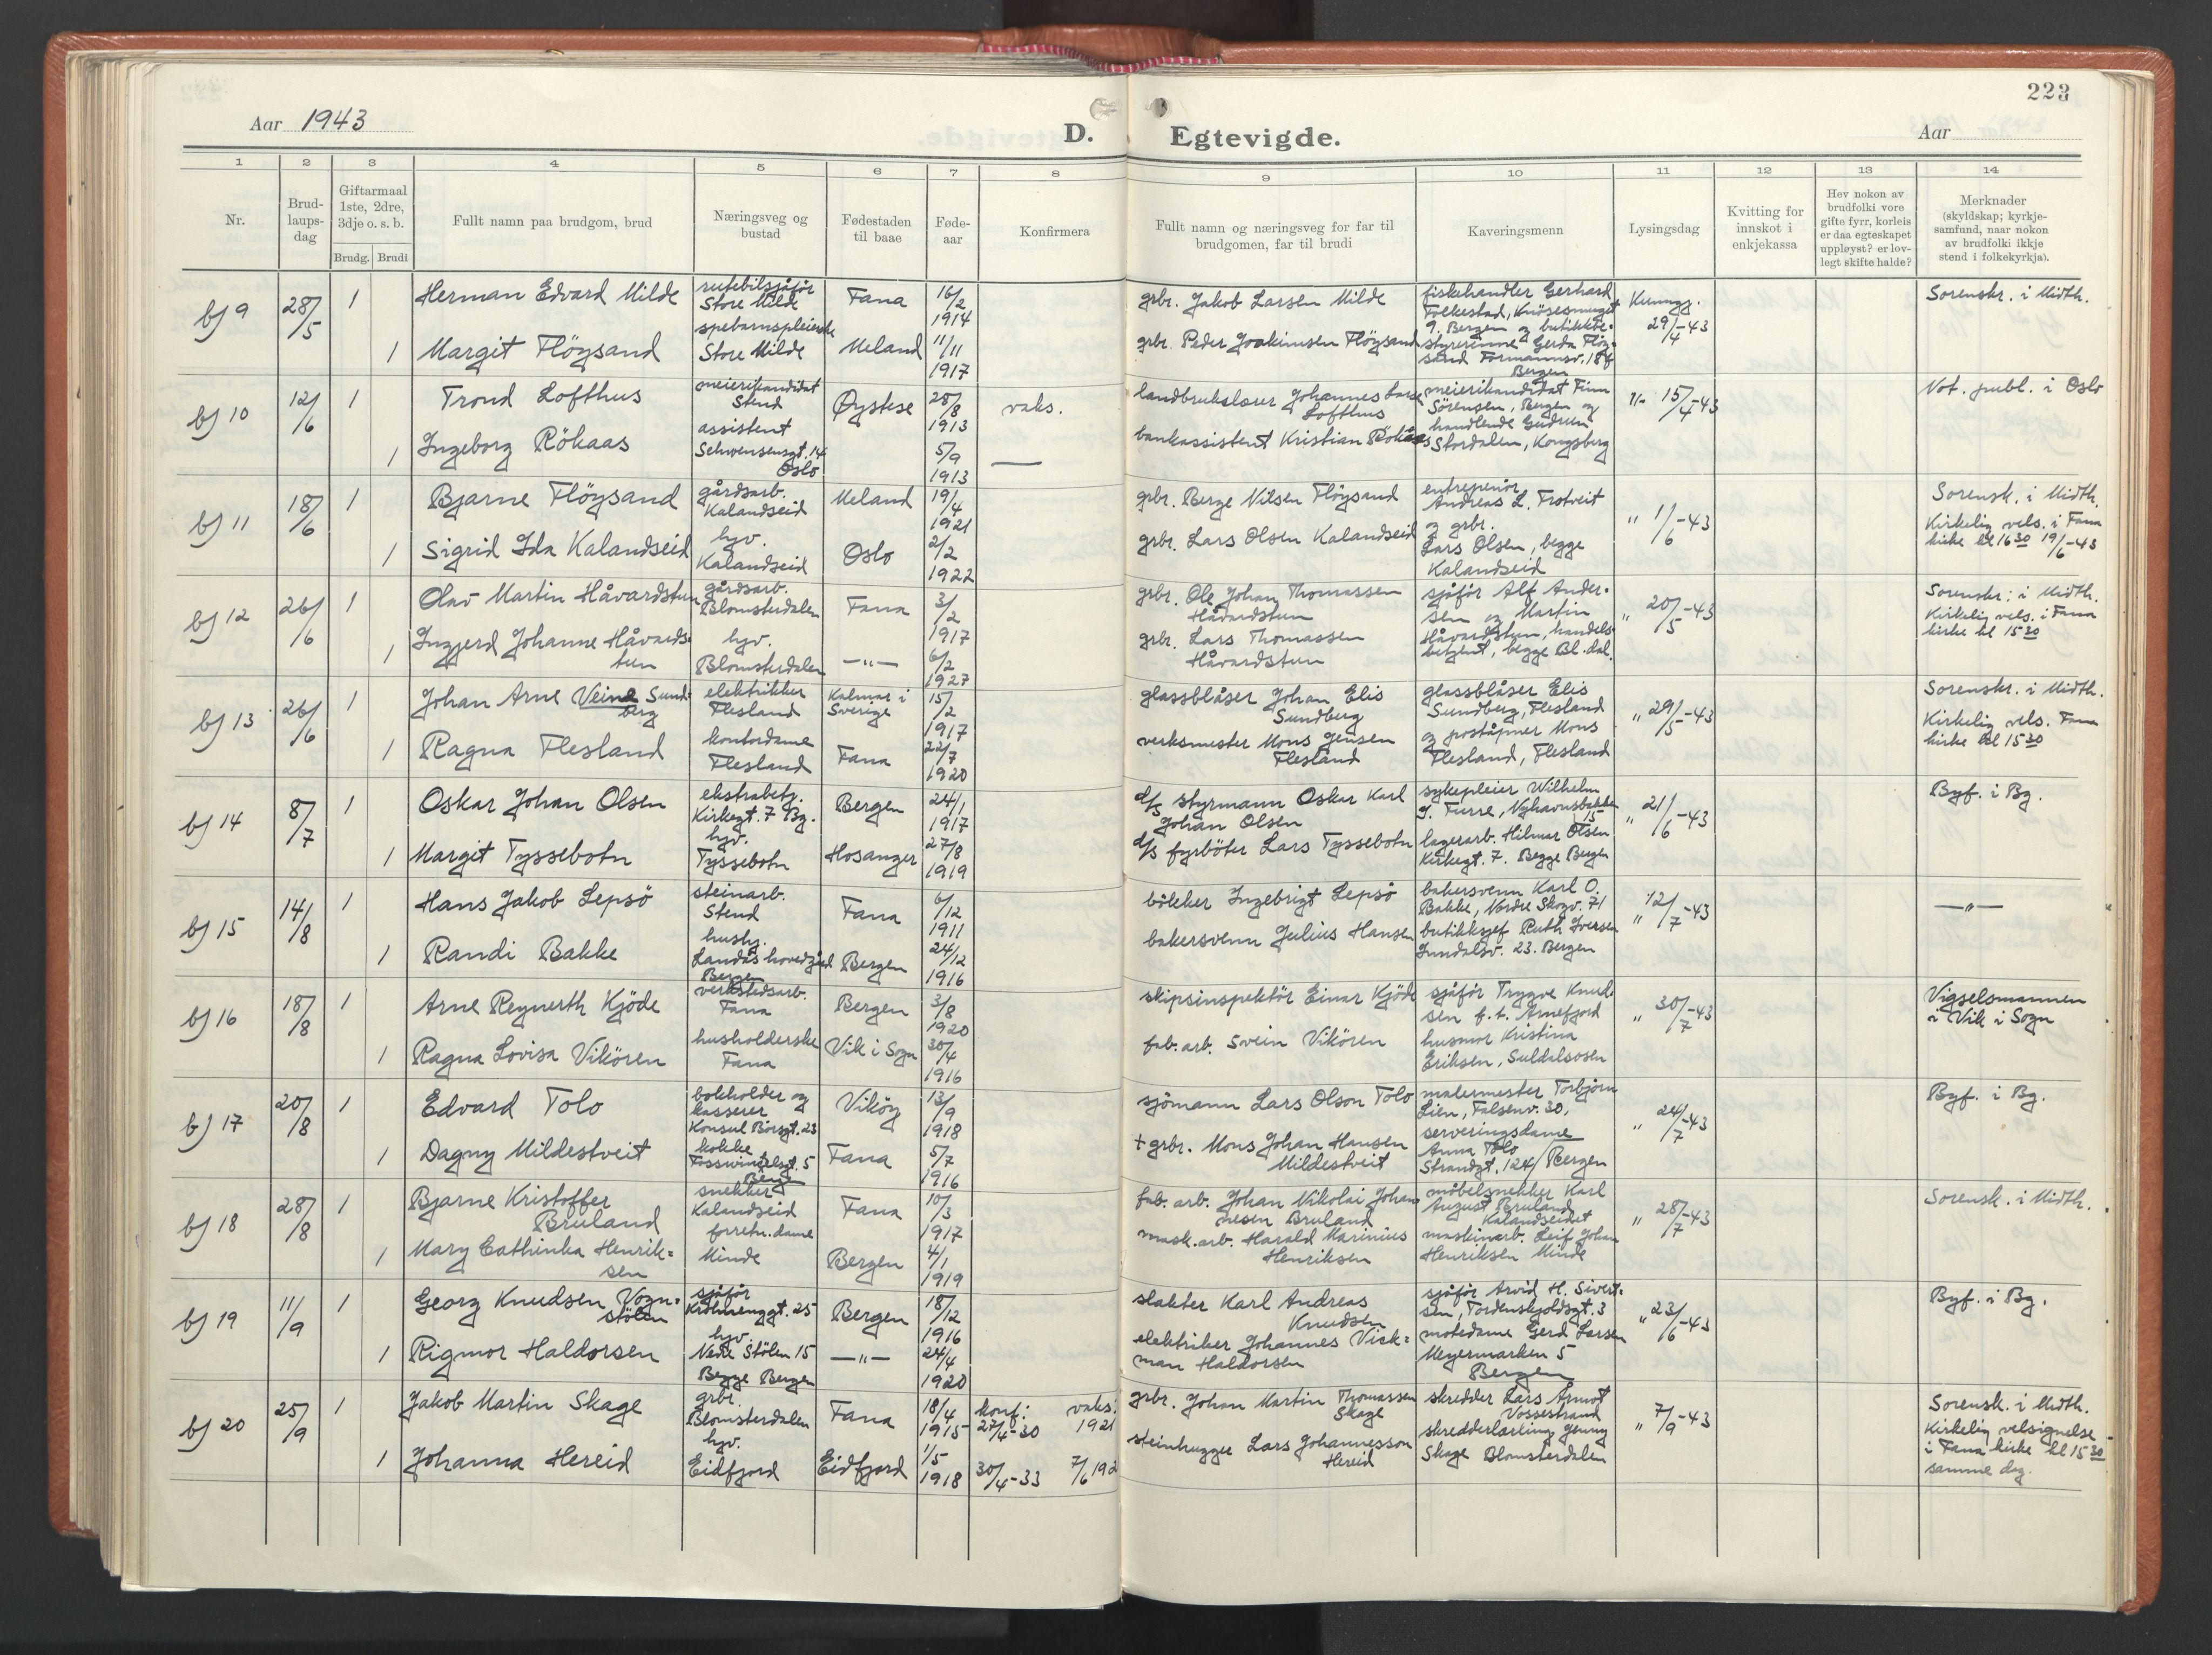 223
Aar 1943
D. Egtevigde.
Aar
1 2 3 4 5 6 7 8 9 10 11 12 13 14
Nr.
Brud-
laups-
dag
Giftarmaal
1ste, 2dre,
3dje o. s. b.
Brudg. Brudi
Fullt namn paa brudgom, brud
Næringsveg og
bustad
Fødestaden
til baae
Føde-
aar
Konfirmera
Fullt namn og næringsveg for far til
brudgomen, far til brudi
Kaveringsmenn
Lysingsdag
Kvitting for
innskot i
enkjekassa
Hev nokon av
brudfolki vore
gifte fyrr, korleis
er daa egteskapet
uppløyst? er lov-
legt skifte halde?
Merknader
(skyldskap; kyrkje-
samfund, naar nokon
av brudfolki ikkje
stend i folkekyrkja).
b) 9
28/5
1
Herman Edvard Milde
rutebilsjåför
Store Milde
Fana
16/2
1914
grbr. Jakob Larsen Milde
fiskehandler Gerhard
Folkestad, Knösesmuget
9. Bergen og butikkbe-
styrerinne Gerda Flöy-
sand Formannsv. 18
Bergen
Kunngj.
29/4-43
Sorenskr. i Midth.
1
Margit Flöysand
spebarnspleierske
Store Milde
Meland
11/11
1917
grbr. Peder Joakimsen Flöysand
b) 10
12/6
1
Trond Lofthus
meierikandidat
Stend
Øystese
28/8
1913
vaks.
landbrukslærer Johannes Larse
Lofthus
meierikandidat Finn
Sörensen, Bergen og
handlende Gudrun
Stordalen, Kongsberg
"- 15/4-43
Not. publ. i Oslo
1
Ingeborg Rökaas
assistent
Schwensensgt. 14
Oslo
5/9
1913
—
bankassistent Kristian Rökaas
b) 11
18/6
1
Bjarne Flöysand
gårdsarb.
Kalandseid
Meland
19/4
1921
grbr. Berge Nilsen Flöysand
entrepenör
Andreas L. Trotveit
og grbr.
Lars Olsen, begge
Kalandseid
" 1/6-43
Sorensk. i Midth.
Kirkelig vels. i Fana
kirke kl 16 30 19/6-43
1
Sigrid Ida Kalandseid
hyv.
Kalandseid
Oslo
2/2
1922
grbr. Lars Olsen Kalandseid
b) 12
26/6
1
Olav Martin Håvardstun
gårdsarb.
Blomsterdalen
Fana
3/2
1917
grbr. Ole Johan Thomassen
Håvardstun
sjåför Alf Ander-
sen og Martin
Håvardstun, handels-
betjent, begge Bl.dal.
" 20/5-43
Sorenskr. i Midth.
Kirkelig vels. i Fana
kirke kl 15 30
1
Ingjerd Johanne Håvards-
tun
hyv.
Blomsterdalen
—"—
6/2
1927
grbr. Lars Thomassen
Håvardstun
b) 13
26/6
1
Johan Arne Veine Sund-
berg
elektrikker
Flesland
Kalmar i
Sverige
15/2
1917
glassblåser Johan Elis
Sundberg
glassblåser Elis
Sundberg, Flesland
og poståpner Mons
Flesland, Flesland
" 29/5-43
Sorenskr. i Midth.
Kirkelig vels. Fana
kirke kl 15 30
1
Ragna Flesland
kontordame
Flesland
Fana
22/7
1920
verksmester Mons Jensen
Flesland
b) 14
8/7
1
Oskar Johan Olsen
ekstrabetj.
Kirkegt. 7 Bg.
Bergen
24/1
1917
d/s styrmann Oskar Karl
Johan Olsen
sykepleier Wilhelm
J. Furre, Nyhavnsbakke
15
lagerarb. Hilmar Olsen
Kirkegt. 7. Begge Bergen
" 21/6-43
Byf. i Bg.
1
Margit Tyssebotn
hyv.
Tyssebotn
Hosanger
27/8
1919
d/s fyrböter Lars Tyssebotn
b) 15
14/8
1
Hans Jakob Lepsö
steinarb.
Stend
Fana
6/12
1911
bökker Ingebrigt Lepsö
bakersvenn Karl O.
Bakke, Nordre Skogv. 71
butikksjef Ruth Iversen
Lundalsv. 23. Bergen
" 12/7-43
—"—
1
Randi Bakke
hushj.
Landås hovedgård
Bergen
Bergen
24/12
1916
bakersvenn Julius Hansen
b) 16
18/8
1
Arne Reynerth Kjöde
verkstedsarb.
Fana
Bergen
3/8
1920
skipsinspektör Einar Kjöde
sjåför Trygve Knud-
sen f.t. Arnefjord
husmor Kristina
Eriksen, Suldalsosen
" 30/7-43
Vigselsmannen
i Vik i Sogn
1
Ragna Lovisa Vikören
husholderske
Fana
Vik i Sogn
30/4
1916
fab.arb. Svein Vikören
b) 17
20/8
1
Edvard Tolo
bokholder og
kasserer
Konsul Börsgt. 23
Viköy
13/9
1918
sjömann Lars Olson Tolo
malermester Torbjörn
Lien, Falsenv. 30,
serveringsdame
Anna Tolo
Strandgt. 124/ Bergen
" 24/7-43
Byf. i Bg.
1
Dagny Mildestveit
kokke
Fosswinckelsgt. 5
Berg
Fana
5/7
1916
+ grbr. Mons Johan Hansen
Mildestveit
b) 18
28/8
1
Bjarne Kristoffer
Bruland
snekker
Kalandseid
Fana
10/3
1917
fab. arb. Johan Nikolai Johan
nesen Bruland
möbelsnekker Karl
August Bruland
Kalandseidet
maskinarb. Leif Johan
Henriksen Minde
" 28/7-43
Sorensk. i Midth.
1
Mary Cathinka Henrik-
sen
forretn.dame
Minde
Bergen
4/1
1919
mask.arb. Harald Marinius
Henriksen
b) 19
11/9
1
Georg Knudsen Vogn-
stölen
sjåför
Krohnenggt. 25
Bergen
18/12
1916
slakter Karl Andreas
Knudsen
sjåför Arvid H. Sivert-
sen, Tordenskjoldsgt. 3
motedame Gerd Larsen
Meyermarken 5
Bergen
" 23/6-43
Byf. i Bg.
1
Rigmor Haldorsen
hyv.
Nedre Stölen 15
Begge Bergen
—"—
24/4
1920
elektriker Johannes Vick-
man Haldorsen
b) 20
25/9
1
Jakob Martin Skage
grbr.
Blomsterdalen
Fana
18/4
1915
konf: vaks:
27/4-30 1921
grbr. Johan Martin Thomassen
Skage
skredder Lars Arnot
Vossestrand
skredderlærling Jenny
Skage Blomsterdalen
" 7/9-43
Sorensk. i Midth.
Kirkelig velsignelse
i Fana kirke kl 15 30
samme dag.
1
Johanna Hereid
hyv.
Eidfjord
Eidfjord
1/5
1918
30/4-33 7/6 192
steinhugger Lars Johannesson
Hereid